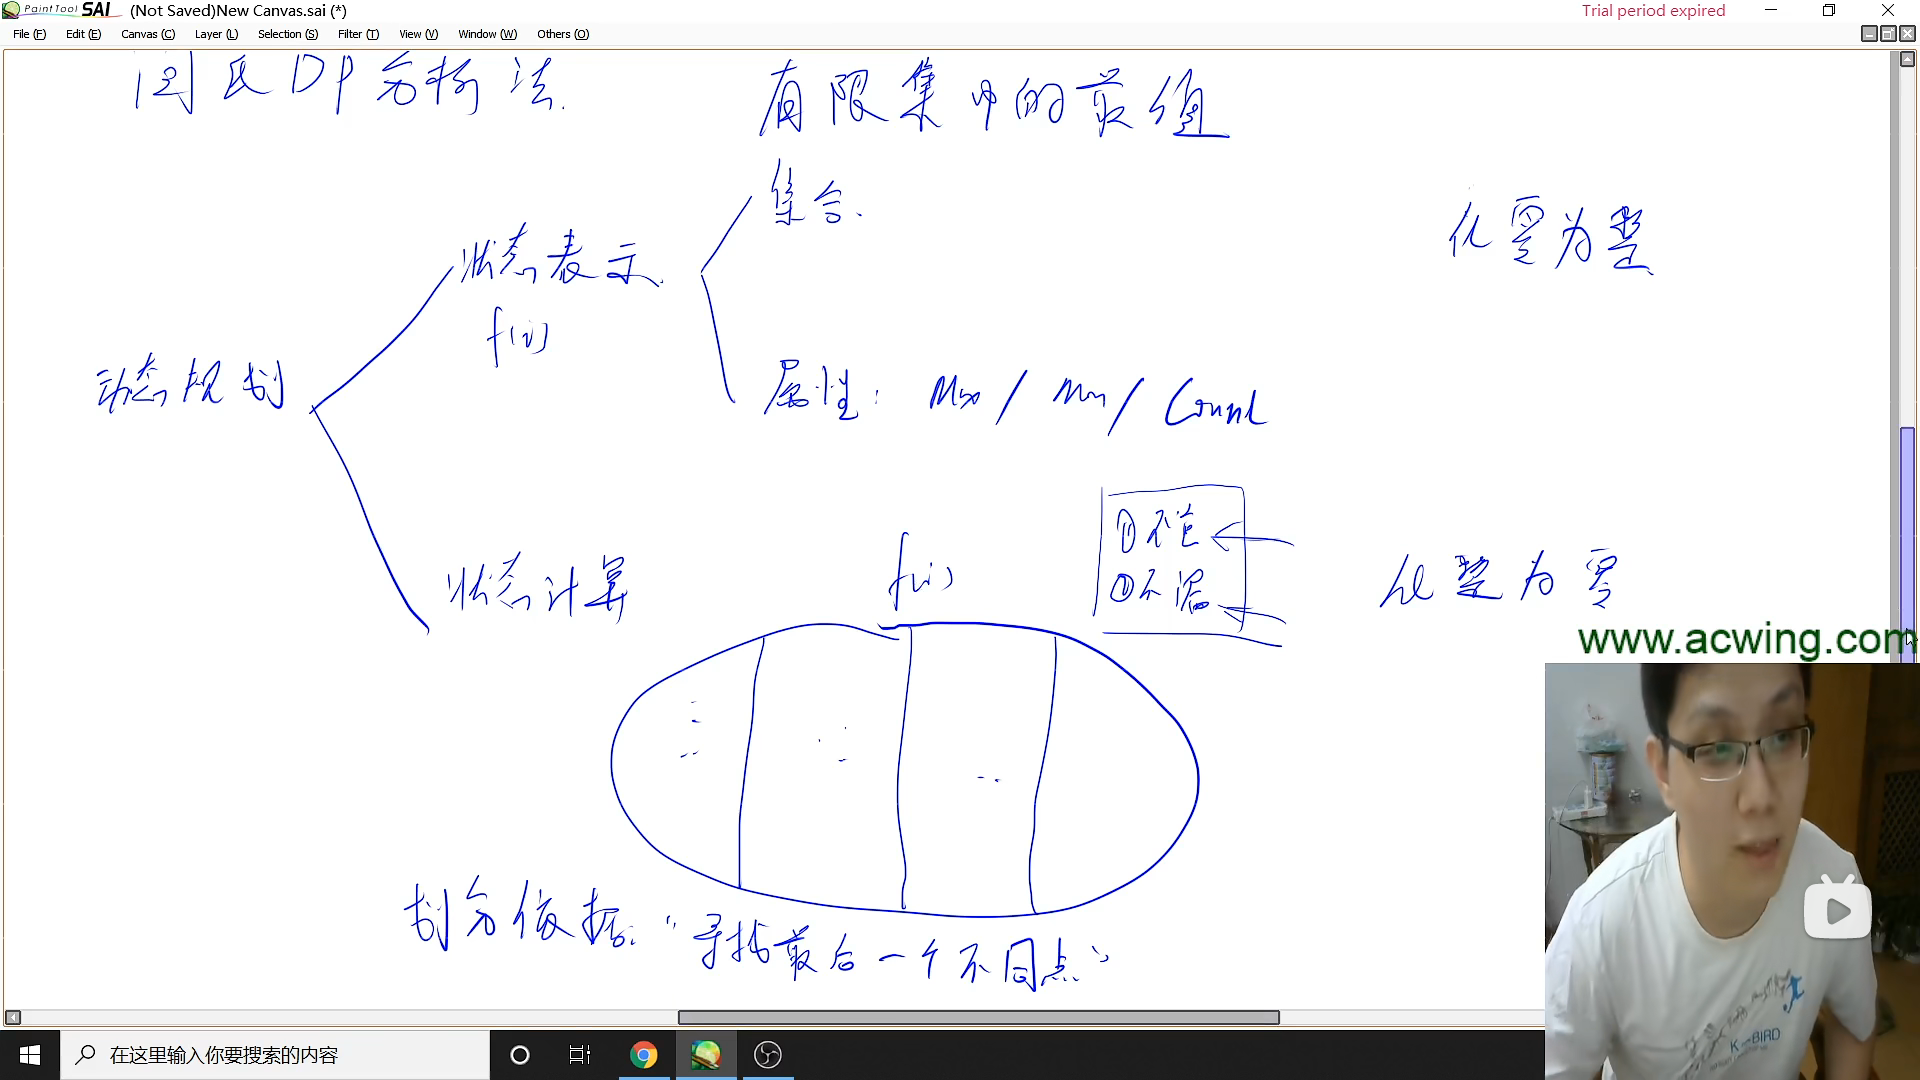 PaintTool SAI (Not Saved)New Canvas.sai (*)
Trial period expired
File (F) Edit (E) Canvas (C) Layer (L) Selection (S) Filter (T) View (V) Window (W) Others (O)
闫氏DP分析法.
有限集中的最值
集合.
化零为整
状态表示.
f(i)
动态规划
属性: Max / Min / Count
①不重
②不漏
状态计算
f(i)
化整为零
www.acwing.com
划分依据: "寻找最后一个不同点"
K-BIRD
在这里输入你要搜索的内容